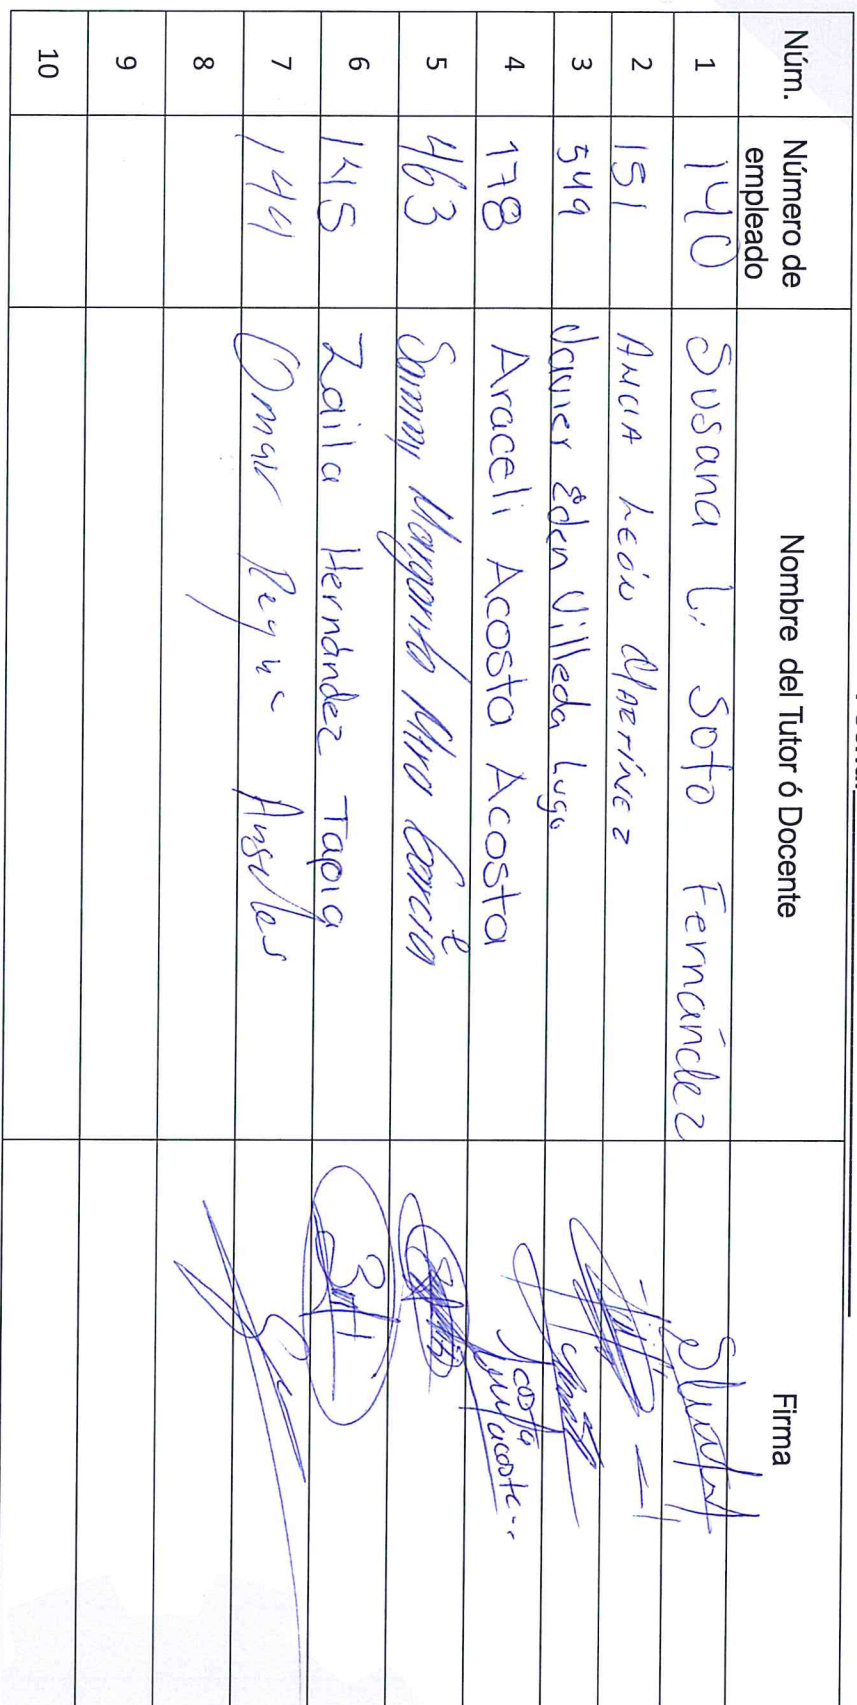 Núm. Número de empleado Nombre del Tutor ó Docente Firma
1 140 Susana L. Soto Fernández
2 151 ANCIA LEÓN MARTÍNEZ
3 549 Javier Eden Villeda Lugo
4 178 Araceli Acosta Acosta
5 463 Sammy Margarita García
6 145 Zaila Hernández Tapia
7 144 Omar Angeles
8
9
10